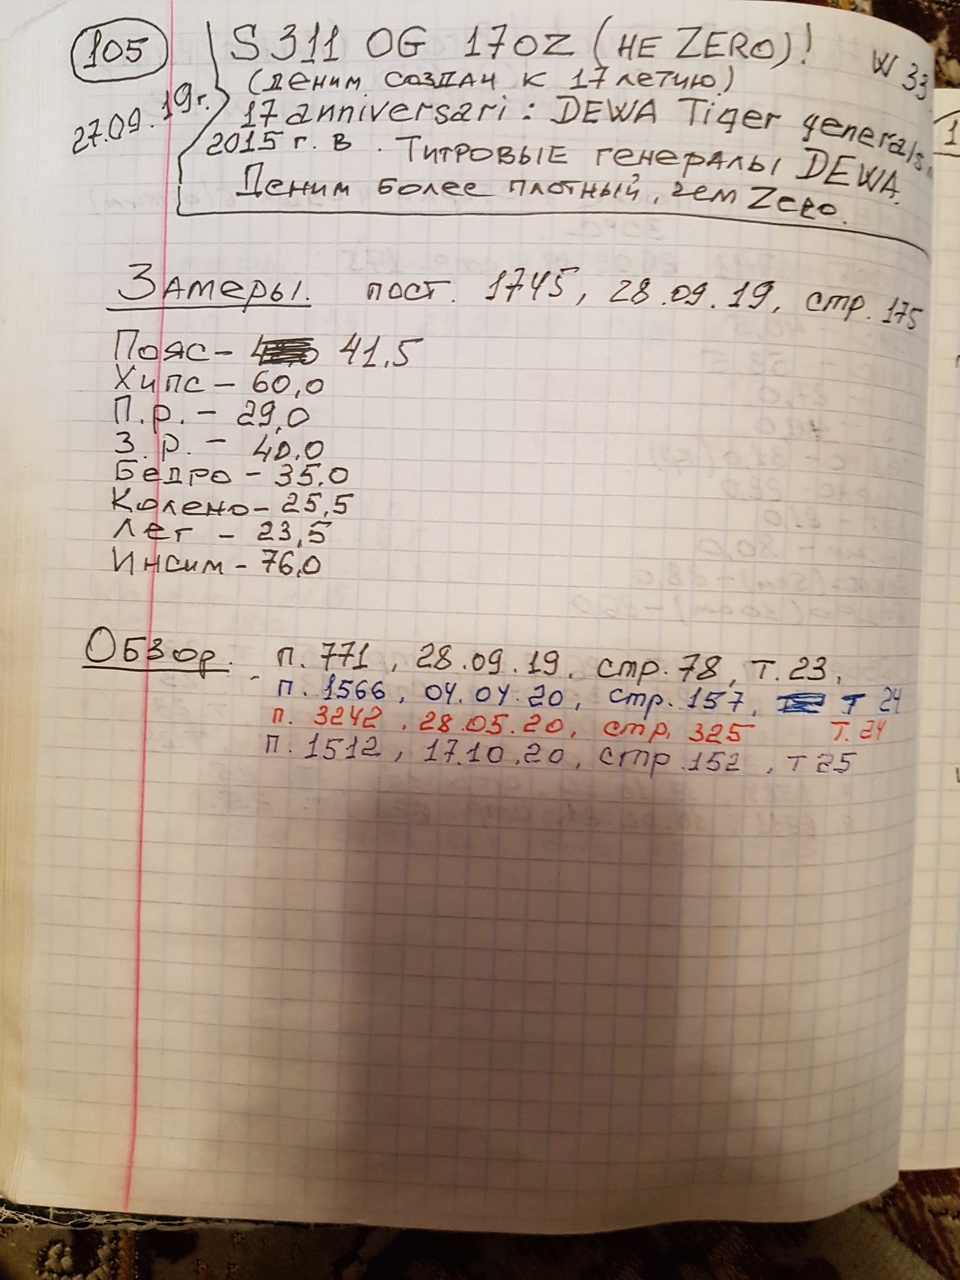 105
S 311 OG 17OZ (НЕ ZERO)!
W 33
27.09.19г.
(деним создан к 17 летию)
17 anniversari: DEWA Tiger generals
2015 г. в. Титровые генералы DEWA.
Деним более плотный, чем Zero.
1
Замеры. пост. 1745, 28.09.19, стр. 175
Пояс - 41,5
Хипс - 60,0
П.р. - 29,0
З.р. - 40,0
Бедро - 35,0
Колено - 25,5
Лег - 23,5
Инсим - 76,0
Обзор. п. 771, 28.09.19, стр. 78, т. 23,
- п. 1566, 04.04.20, стр. 157, т 24
п. 3242, 28.05.20, стр. 325 т. 24
п. 1512, 17.10.20, стр. 152, т 25